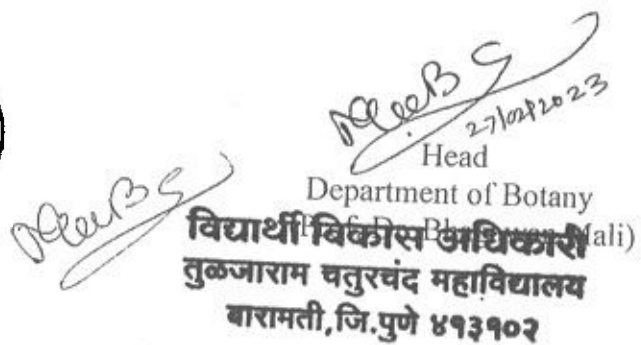 27/02/2023
Head
Department of Botany
Mali)
विद्यार्थी विकास अधिकारी
तुळजाराम चतुरचंद महाविद्यालय
बारामती,जि.पुणे ४१३१०२